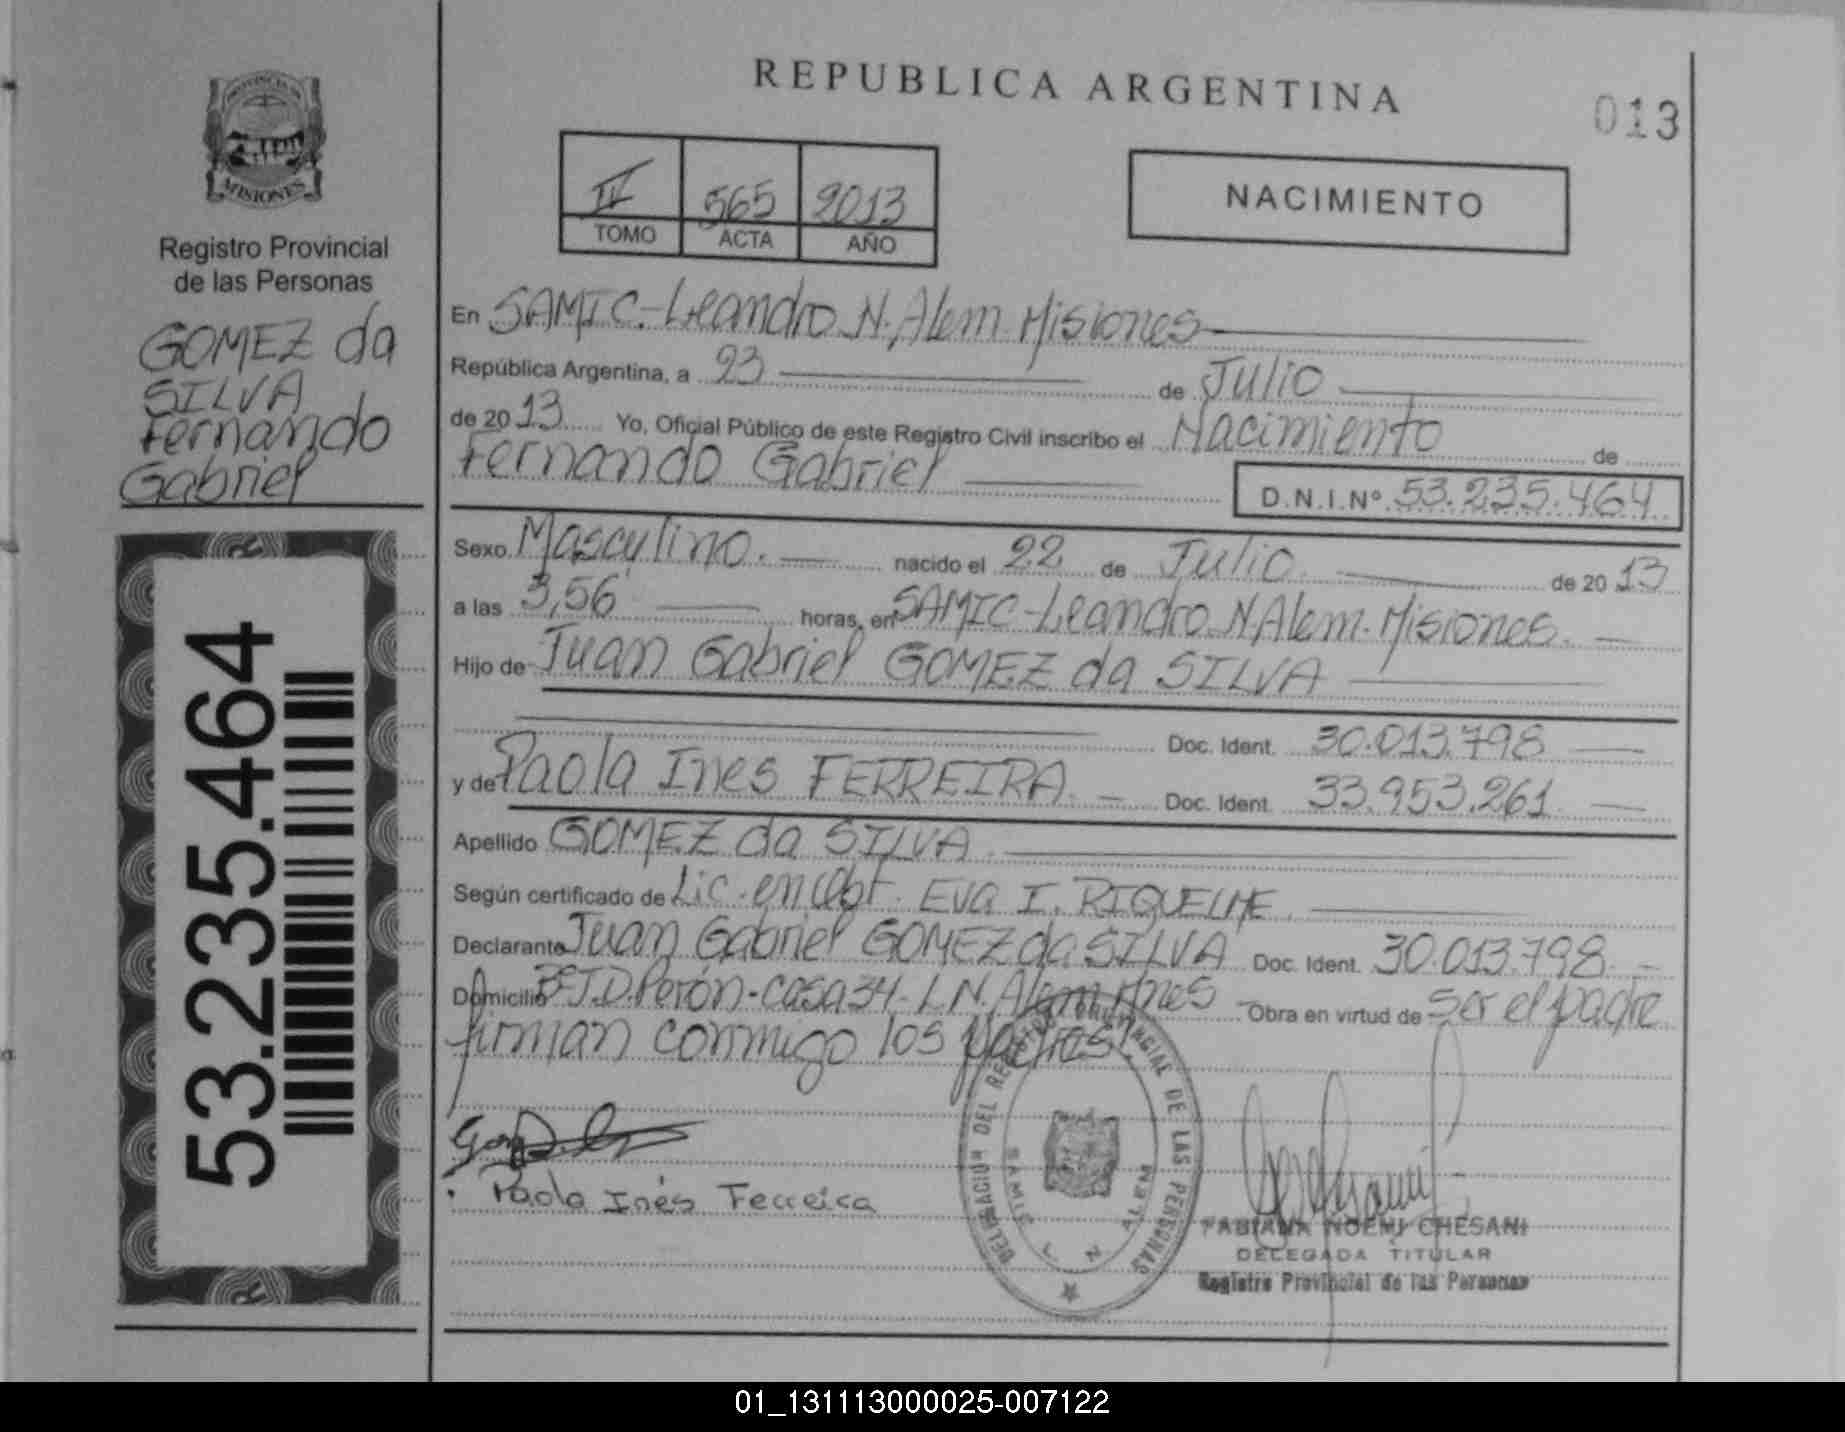 PROVINCIA DE
MISIONES
Registro Provincial
de las Personas
GOMEZ da
SILVA
Fernando
Gabriel
53.235.464
REPUBLICA ARGENTINA
013
II 565 2013
TOMO ACTA AÑO
NACIMIENTO
En SAMIC-Leandro N. Alem Misiones
República Argentina, a 23 de Julio
de 2013 Yo, Oficial Público de este Registro Civil inscribo el Nacimiento de
Fernando Gabriel D.N.I.Nº 53.235.464
Sexo Masculino. nacido el 22 de Julio. de 2013
a las 3,56 horas, en SAMIC-Leandro N. Alem. Misiones.
Hijo de Juan Gabriel GOMEZ da SILVA
Doc. Ident. 30.013.798
y de Paola Ines FERREIRA. Doc. Ident. 33.953.261
Apellido GOMEZ da SILVA
Según certificado de Lic. en Obt. Eva I. RIQUELME.
Declarante Juan Gabriel GOMEZ da SILVA Doc. Ident. 30.013.798.
Domicilio Bº J.D.Perón-casa 34-L.N. Alem Mnes Obra en virtud de ser el padre
firman conmigo los padres.
Paola Inés Ferreira
DELEGACION DEL REGISTRO PROVINCIAL DE LAS PERSONAS
SAMIC L. N. ALEM
FABIANA NOEMI CHESANI
DELEGADA TITULAR
Registro Provincial de las Personas
01_131113000025-007122